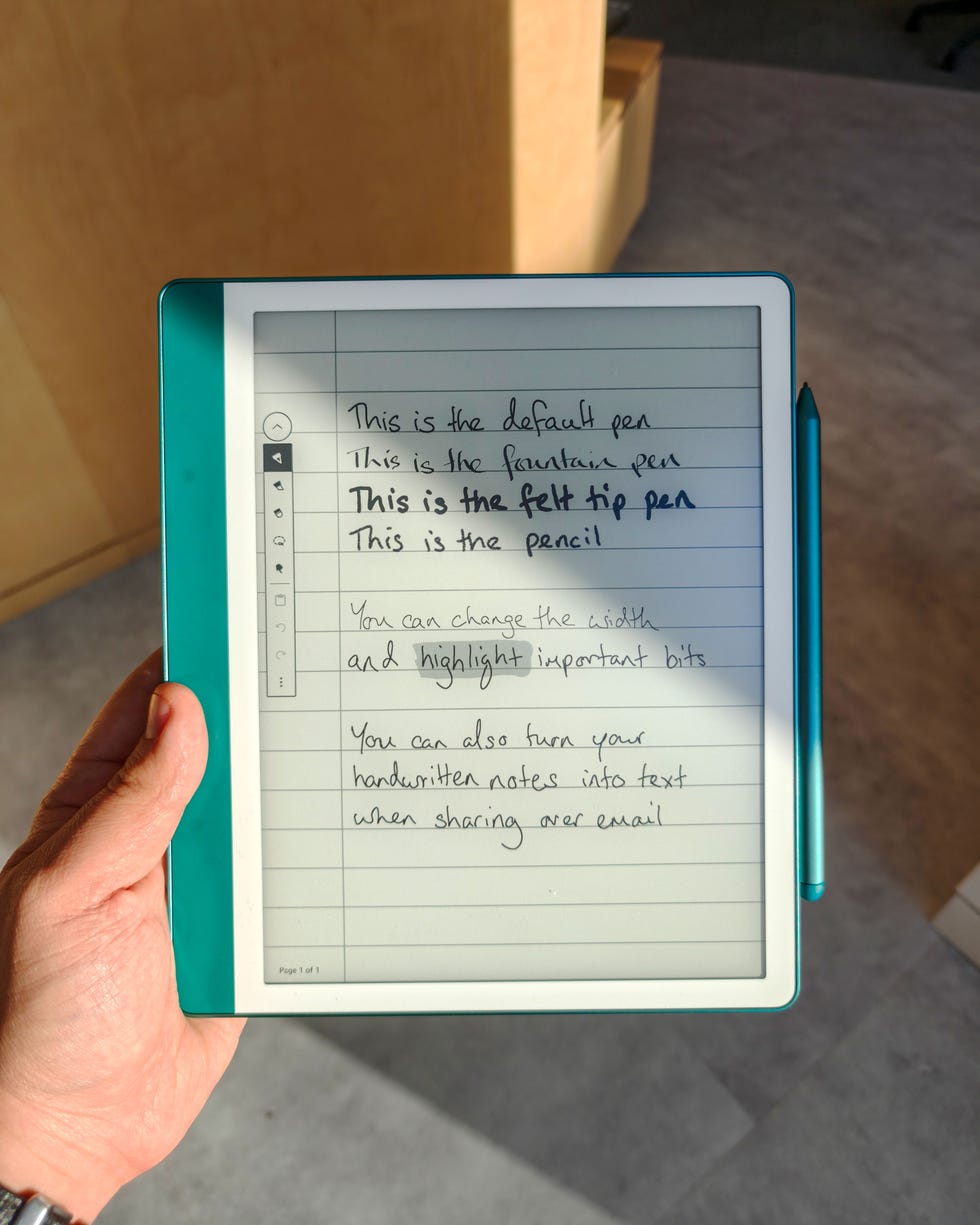 This is the default pen
This is the fountain pen
This is the felt tip pen
This is the pencil
You can change the width
and highlight important bits
You can also turn your
handwritten notes into text
when sharing over email
Page 1 of 1